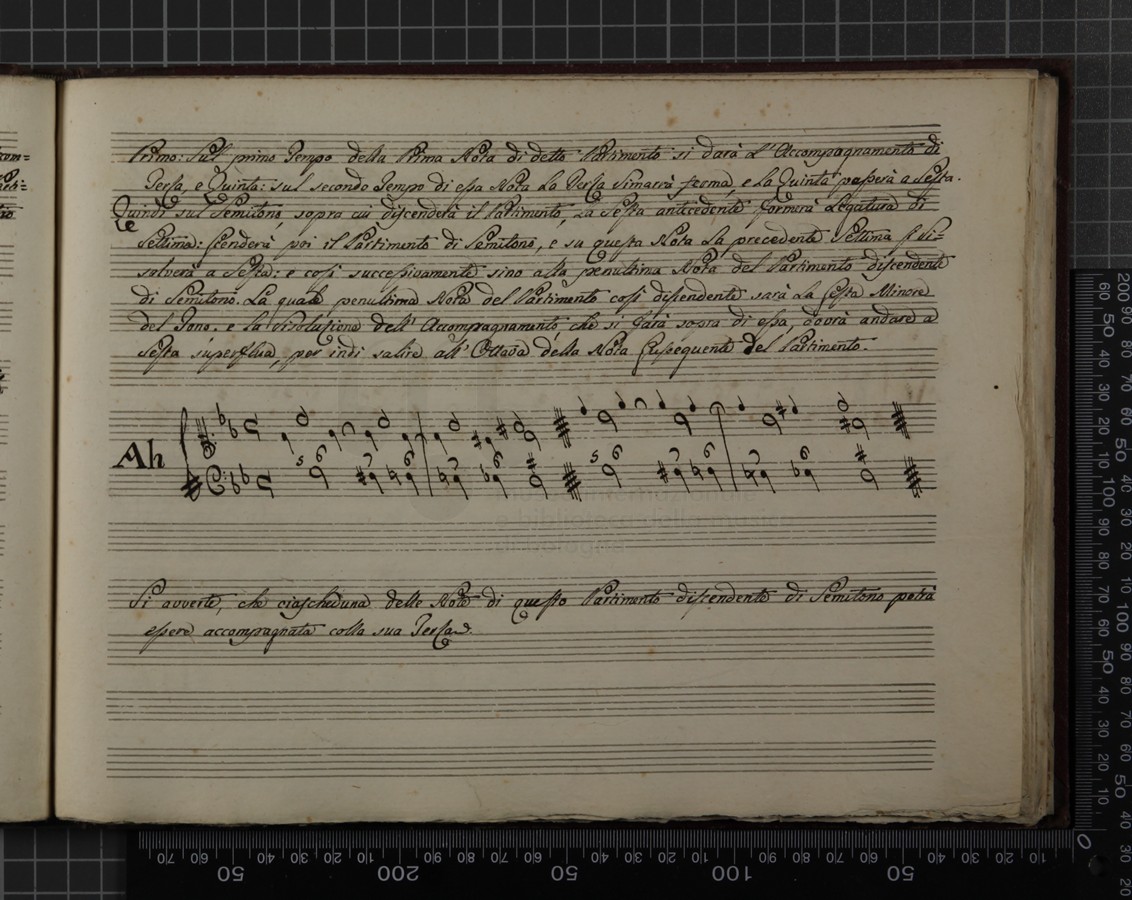 Primo: Sul primo Tempo della Prima Nota di detto Partimento si darà l'Accompagnamento di
Terza, e Quinta: sul secondo Tempo di essa Nota la Terza rimarrà ferma, e la Quinta passerà a Sesta.
Quindi sul Semitono, sopra cui discenderà il Partimento, la Sesta antecedente formerà Legatura di
Settima: scenderà poi il Partimento di Semitono, e su questa Nota la precedente Settima si ri=
solverà a Sesta: e così successivamente sino alla penultima Nota del Partimento discendente
di Semitono. La quale penultima Nota del Partimento così discendente sarà la Sesta Minore
del Tono. e la risoluzione dell'Accompagnamento, che si farà sopra di essa, dovrà andare a
Sesta superflua, per indi salire all'Ottava della Nota susseguente del Partimento.
Ah
5 6 7 6 7 6 5 6 7 6 7 6
Si avverte, che ciascheduna delle Note di questo Partimento discendente di Semitono potrà
essere accompagnata colla sua Terza.
200 90 80 70 60 50 40 30 20 10 100
60 50 40 30 20 10 100 90 80 70 60 50 40 30 20 10 0
70 60 50 40 30 20 10 200 90 80 70 60 50 40 30 20 10 100 90 80 70 60 50 40 30 20 10 0